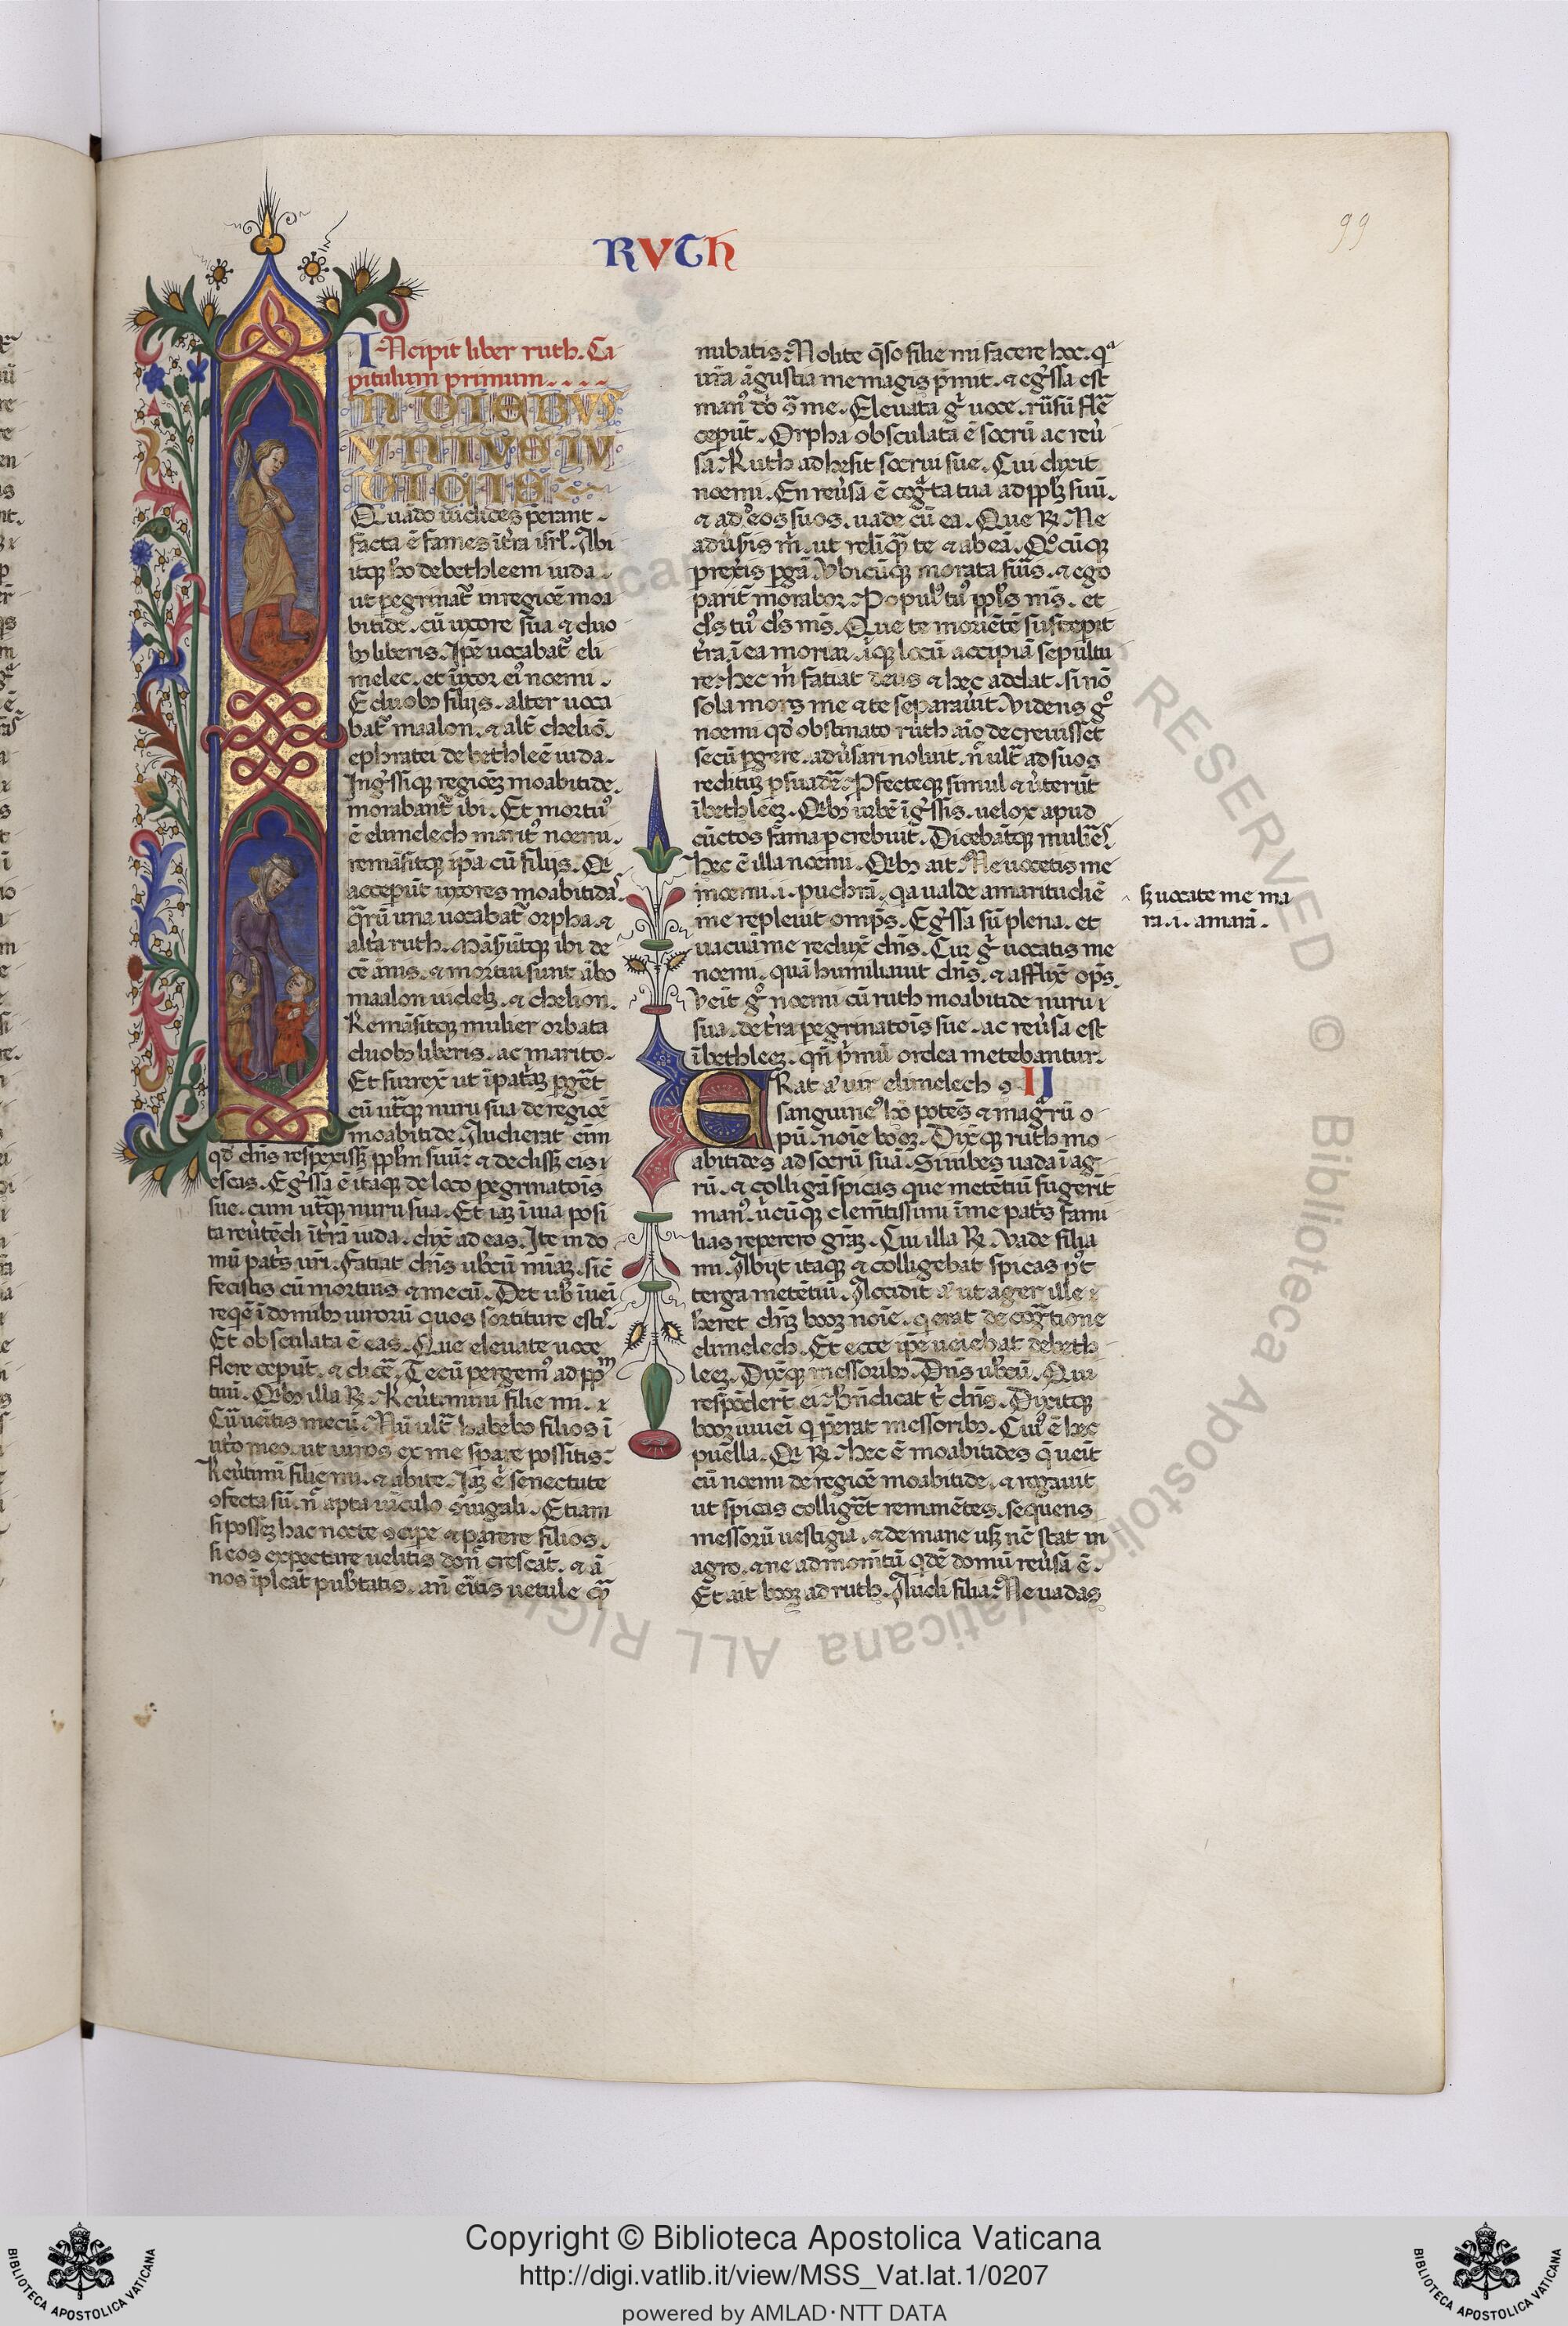 RVTH
99
INcipit liber ruth. Ca
pitulum primum....
IN DIEBVS
VNIVS IV
DICIS
Quādo iudices p̄erant.
facta ē fames īt̄ra isrl̄. Abi
itq; hō de bethleem iuda.
ut pegrinat̄ in regiōē moa
bitidē. cū uxore sua & duo
bꝫ liberis. Ip̄e uocabat̄ eli
melec. et uxor ei᷒ noemi.
E duobꝫ filijs. alter uoca
bat᷒ maalon. & alt̄ cheliō.
ephratei de bethleē iuda.
Ingr̄ssiq; regiōeꝫ moabitidē.
morabant᷒ ibi. Et mortu᷒
ē elimelech marit᷒ noemi.
remāsitq; ip̄a cū filijs. Qi
acceperūt uxores moabitidas.
q̄rū una uocabat᷒ orpha. &
alt̄a ruth. Māserūtq; ibi de
cē ānis. & mortui sunt ābo
maalon uidelꝫ. & chelion.
Remāsitq; mulier orbata
duobꝫ liberis. ac marito.
Et surrex̄ ut ī patriaꝫ pḡet
cū ut̄q; nuru sua de regiōē
moabitidē. Audierat enī
qd̄ dn̄s respexissꝫ ppl̄m suū: & dedissꝫ eis
escas. Egr̄ssa ē itaq; de loco pegrinatiōis
sue. cum ut̄q; nuru sua. Et iaꝫ ī uia posi
ta reūtēdi ī t̄rā iuda. dix̄ ad eas. Ite in do
mū patris ur̄i. Faciat dn̄s ubcū miāꝫ. sic̄
fecistis cū mortuis & mecū. Det ub̄ īueī
reqē ī domibꝫ uirorū quos sortiture estis.
Et obsculata ē eas. Que eleuate uoce
flere ceperūt. & dicē. Tecū pergem᷒ ad pp̄m
tuū. Qibꝫ illa R̄. Reūtimini filie mi.
Cū ueitis mecū: Nū ult̄ habebo filios ī
ut̄o meo. ut uiros ex me sperare possitis:
Reūtimī filie mi. & abite. Iaꝫ ē senectute
ꝯfecta sū. n̄ apta uiculo ꝯiugali. Etiam
si posseꝫ hac nocte ꝯcipe & parere filios.
si eos expectare uelitis don̄ crescāt. & ā
nos īpleāt pub̄tatis. an̄ eītis uetule q̄ꝫ
nubatis: Nolite q̄so filie mi facere hoc. qᵃ
ur̄a āgustia me magis p̄mit. & egr̄ssa est
man᷒ dn̄i ꝯᵃ me. Eleuata gͥ uoce. rūsū flē
ceperūt. Orpha obsculata ē socrū ac reu̾
sa. Ruth adhesit socrui sue. Cui dixit
noemi. En reu̾sa ē cogᵃta tua ad pplꝫ suū.
& ad deos suos. uade cū ea. Que R̄. Ne
adu̾seris m̄. ut relīquā te & abeā. Qͦcūq;
prexeris pgā. Vbicūq; morata fu̾is. & ego
parit̄ morabor. Popul᷒ tu᷒ ppl̄s m̄s. et
ds̄ tu᷒ ds̄ m̄s. Que te moriētē susceperit
t̄ra. ī ea moriar. ibiq; locū accipiā sepultu
re: hec m̄ faciat deus & hec addat. si nō
sola mors me & te separau̾it. Videns gͦ
noemi qd̄ obstinato ruth aīo decreuisset
secū pgere. adu̾sari noluit. n̄ ult̄ ad suos
reditū psuadē. Pfecteq; simul & uenerūt
ī bethleeꝫ. Qibꝫ urbē īgr̄ssis. uelox apud
cūctos fama percrebuit. Dicebātq; mulieres.
hec ē illa noemi. Qibꝫ ait. Ne uocetis me
noemi .i. pulchrā. qa ualde amaritudīē
me repleuit omps̄. Egr̄ssa sū plena. et
uacuā me reduxit dn̄s. Cur gͥ uocatis me
noemi. quā humiliauit dn̄s. & afflix̄ ops̄.
Veīt gͦ noemi cū ruth moabitide nuru
sua. de t̄ra pegrinatiōis sue. ac reu̾sa est
ī bethleeꝫ. qn̄ p̄mū ordea metebantur.
ERat aūt uir elimelech ꝯ II
sanguine᷒ hō potēs & magᵃrū o
pū. noīe booꝫ. Dixitq; ruth mo
abitides ad socrū suā. Si iubes uadā ī ag
rū. & colligā spicas que metētiū fugerīt
man᷒. ubicūq; clemētissimi ī me patris fami
lias reperero grāꝫ. Cui illa R̄. Vade filia
mi. Abijt itaq; & colligebat spicas p᷒t
terga metētiū. Accidit aūt ut ager ille
heret dn̄ꝫ booꝫ noīe. q erat de cogᵃtione
elimelech. Et ecce ip̄e ueiebat de beth
leeꝫ. Dixitq; messoribꝫ. Dn̄s ubcū. Qui
respōderūt ei: Bn̄dicat t̄ dn̄s. Dixitq;
booꝫ iuueī q p̄erat messoribꝫ. Cui᷒ ē hec
puella. Qi R̄. Hec ē moabitides q̄ ueīt
cū noemi de regiōē moabitidē. & rogauit
ut spicas colligēt remanētes. sequens
messorū uestigia. & de mane usꝫ nc̄ stat in
agro. & ne ad momētū qdē domū reu̾sa ē.
Et ait booꝫ ad ruth. Audi filia. Ne uadas
sꝫ uocate me ma
ra .i. amarā.
ALL RIGHTS RESERVED © Biblioteca Apostolica Vaticana
BIBLIOTECA APOSTOLICA VATICANA
Copyright © Biblioteca Apostolica Vaticana
http://digi.vatlib.it/view/MSS_Vat.lat.1/0207
powered by AMLAD·NTT DATA
BIBLIOTECA APOSTOLICA VATICANA